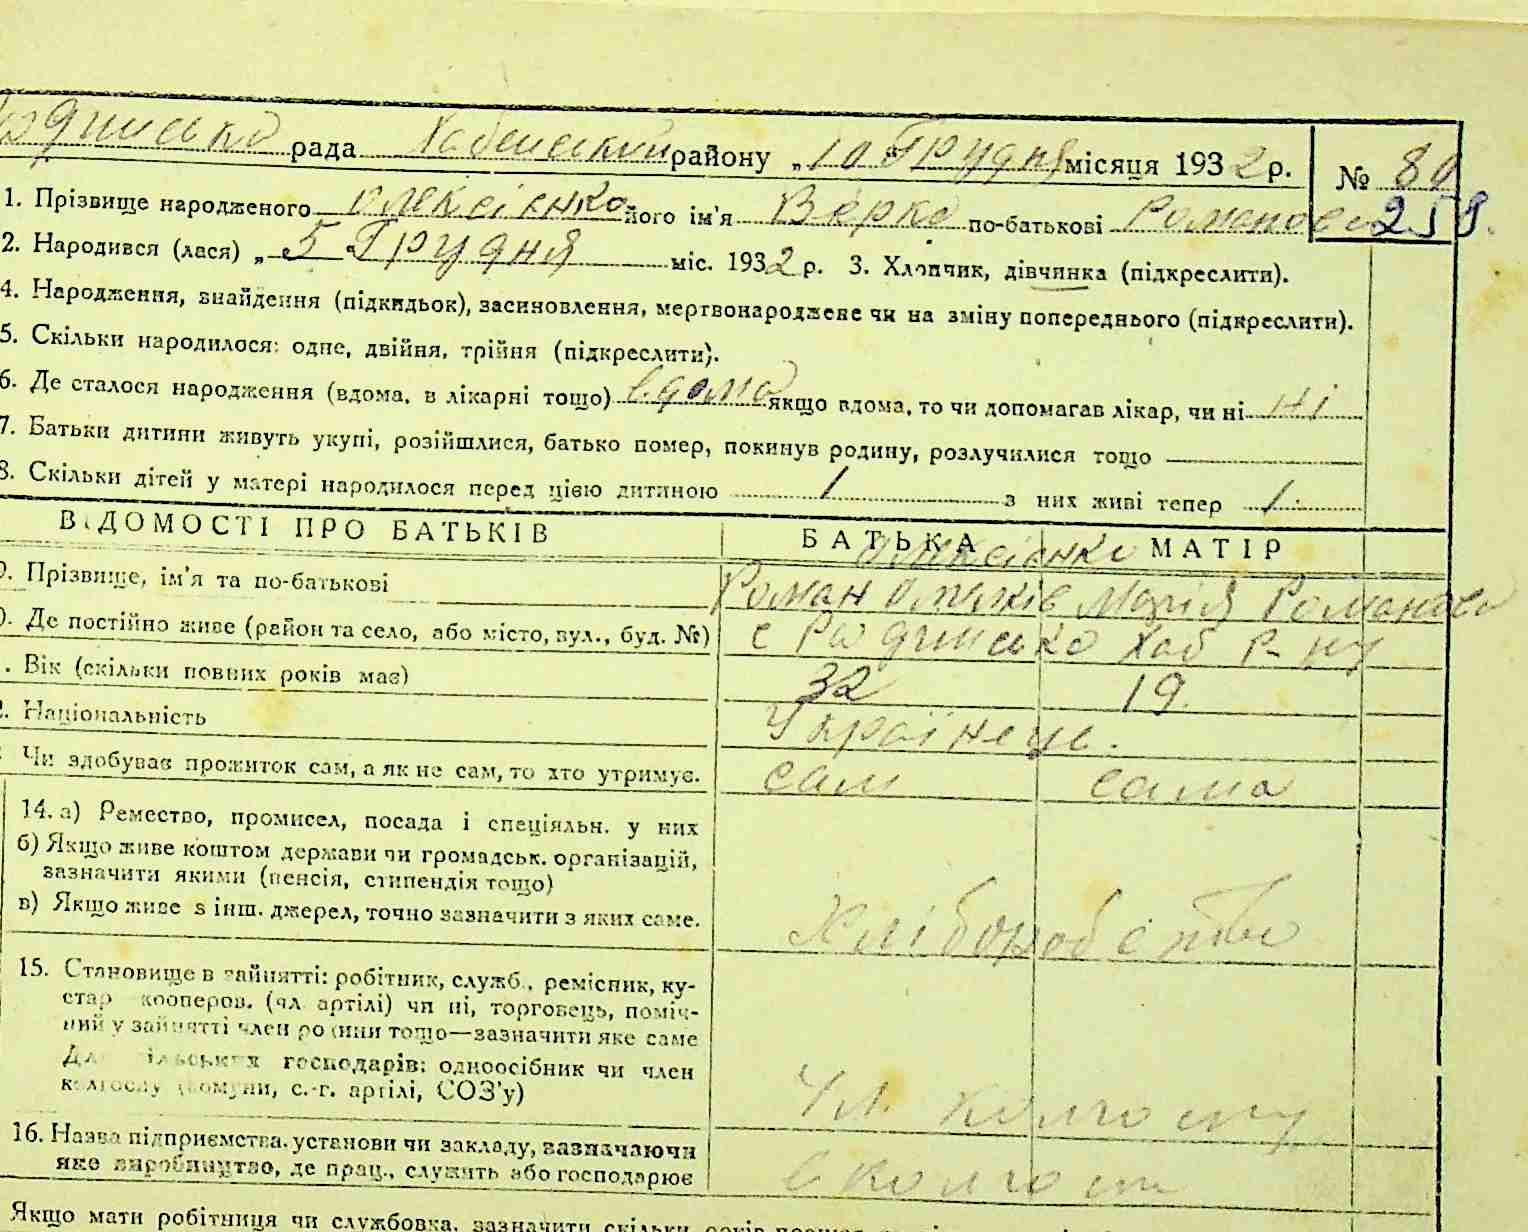 рада Хабенський району „10 Грудня місяця 1932 р. № 80
1. Прізвище народженого Олексієнко його ім'я Вєрка по-батькові Романова 259.
2. Народився (лася) „ 5 Грудня міс. 1932 р. 3. Хлопчик, дівчинка (підкреслити).
4. Народження, знайдення (підкидьок), засиновлення, мертвонароджене чи на зміну попереднього (підкреслити).
5. Скільки народилося: одне, двійня, трійня (підкреслити).
6. Де сталося народження (вдома, в лікарні тощо) вдома якщо вдома, то чи допомагав лікар, чи ні ні
7. Батьки дитини живуть укупі, розійшлися, батько помер, покинув родину, розлучилися тощо
8. Скільки дітей у матері народилося перед цією дитиною 1 з них живі тепер 1
ВІДОМОСТІ ПРО БАТЬКІВ БАТЬКА МАТІР
Олексієнко
Прізвище, ім'я та по-батькові Роман Марія Романова
Де постійно живе (район та село, або місто, вул., буд. №) с Хаб р-ну
Вік (скільки повних років має) 32 19.
Національність Українець.
Чи здобуває прожиток сам, а як не сам, то хто утримує. сам сама
14. а) Ремество, промисел, посада і спеціяльн. у них
б) Якщо живе коштом держави чи громадськ. організацій,
зазначити якими (пенсія, стипендія тощо)
в) Якщо живе з інш. джерел, точно зазначити з яких саме.
Хліборобство
15. Становище в зайнятті: робітник, служб., ремісник, ку-
стар кооперов. (чл. артілі) чи ні, торговець, поміч-
ний у зайнятті член родини тощо—зазначити яке саме
Для сільських господарів: одноосібник чи член
колгоспу (комуни, с.-г. артілі, СОЗ'у) Чл. колгоспу
16. Назва підприємства, установи чи закладу, зазначаючи
яке виробництво, де прац., служить або господарює в колгоспі
Якщо мати робітниця чи службовка, зазначити скільки років